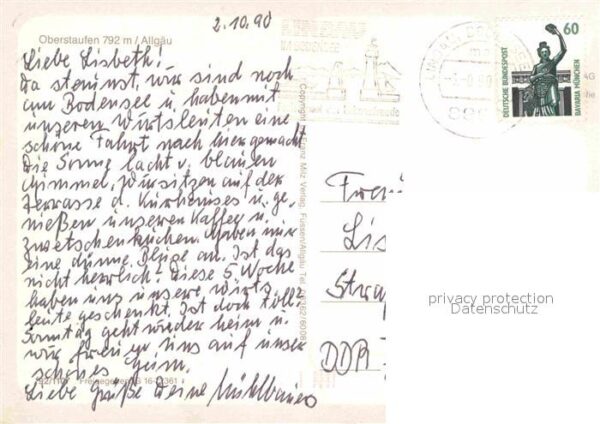 2.10.90
Oberstaufen 792 m / Allgäu
Liebe Lisbeth!
Da staunst, wir sind noch
am Bodensee u. haben mit
unseren Wirtsleuten eine
schöne Fahrt nach hier gemacht
Die Sonne lacht v. blauen
Himmel, wir sitzen auf der
Terrasse d. Kurhauses u. ge-
nießen unseren Kaffee u.
Zwetschenkuchen. Haben nur
eine dünne Bluse an. Ist das
nicht herrlich! Diese 5. Woche
haben uns unsere Wirts-
leute geschenkt. Ist doch toll!
Sonntag geht wieder heim u.
wir freuen uns auf unser
schönes Heim.
Liebe Grüße Deine
LINDAU
IM BODENSEE
60
DEUTSCHE BUNDESPOST
BAVARIA MÜNCHEN
Franz Milz Verlag, Füssen/Allgäu
Frau
Lis
Stra
DDR
privacy protection
Datenschutz